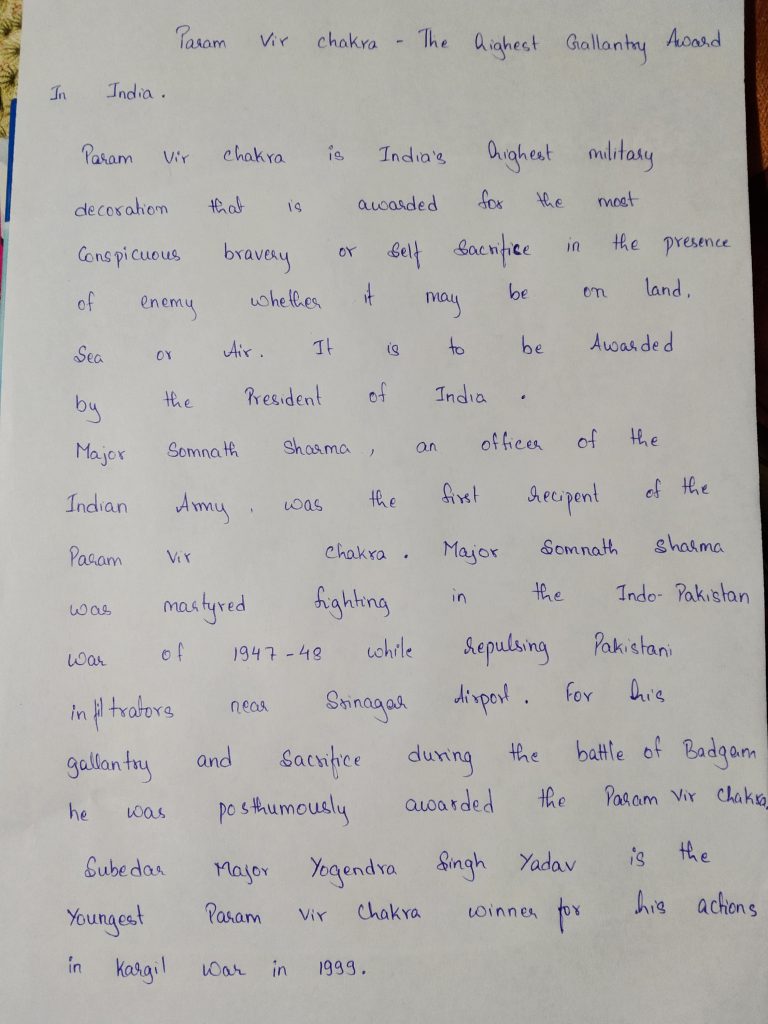 Param Vir chakra - The highest Gallantry Award
In India.
Param Vir chakra is India's highest military
decoration that is awarded for the most
Conspicuous bravery or self sacrifice in the presence
of enemy whether it may be on land,
Sea or Air. It is to be Awarded
by the President of India.
Major Somnath Sharma, an officer of the
Indian Army, was the first recipent of the
Param Vir Chakra. Major Somnath Sharma
was martyred fighting in the Indo-Pakistan
war of 1947-48 while repulsing Pakistani
infiltrators near Srinagar Airport. For his
gallantry and Sacrifice during the battle of Badgam
he was posthumously awarded the Param Vir Chakra.
Subedar Major Yogendra Singh Yadav is the
Youngest Param Vir Chakra winner for his actions
in Kargil War in 1999.